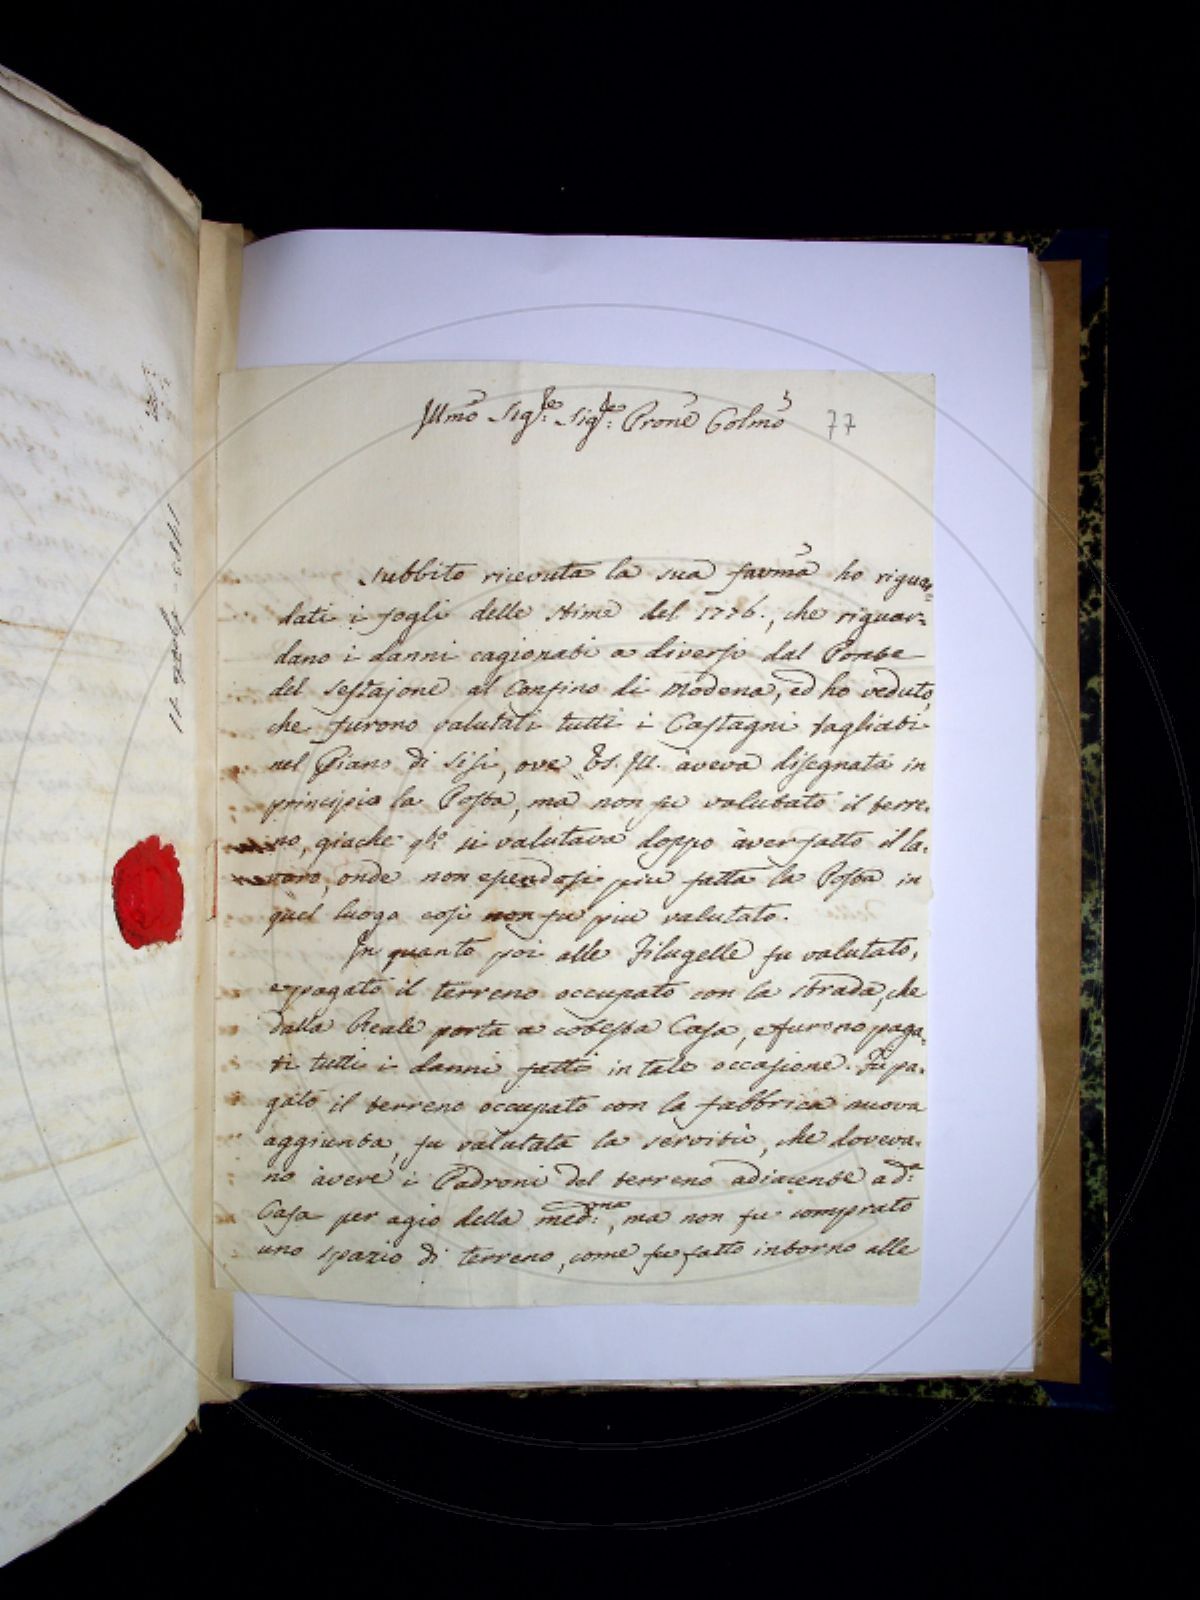 Illmõ Sigre: Sigre: Prone Colmõ 77
Subbito ricevuta la sua favma ho riguar=
dati i fogli delle stime del 1776., che riguar=
dano i danni cagionati a diversi dal Ponte
del Sestajone al Confino di Modena, ed ho veduto,
che furono valutati tutti i Castagni tagliati
nel Piano di Sisi, ove Vs. Ill. aveva disegnata in
principio la Posta, ma non fu valutato il terre-
no, giache qto: si valutava doppo aver fatto il la-
voro, onde non essendosi piu fatta la Posta in
quel luogo cosi non fu piu valutato.
In quanto poi alle Filugelle fu valutato,
e pagato il terreno occupato con la strada, che
dalla Reale porta a cotesta Casa, e furono paga-
ti tutti i danni fatti in tale occasione. Fu pa-
gato il terreno occupato con la fabbrica nuova
aggiunta, fu valutata la servitù, che doveva-
no avere i Padroni del terreno adiacente a de:
Casa per agio della medma:, ma non fu comprato
uno spazio di terreno, come fu fatto intorno alle